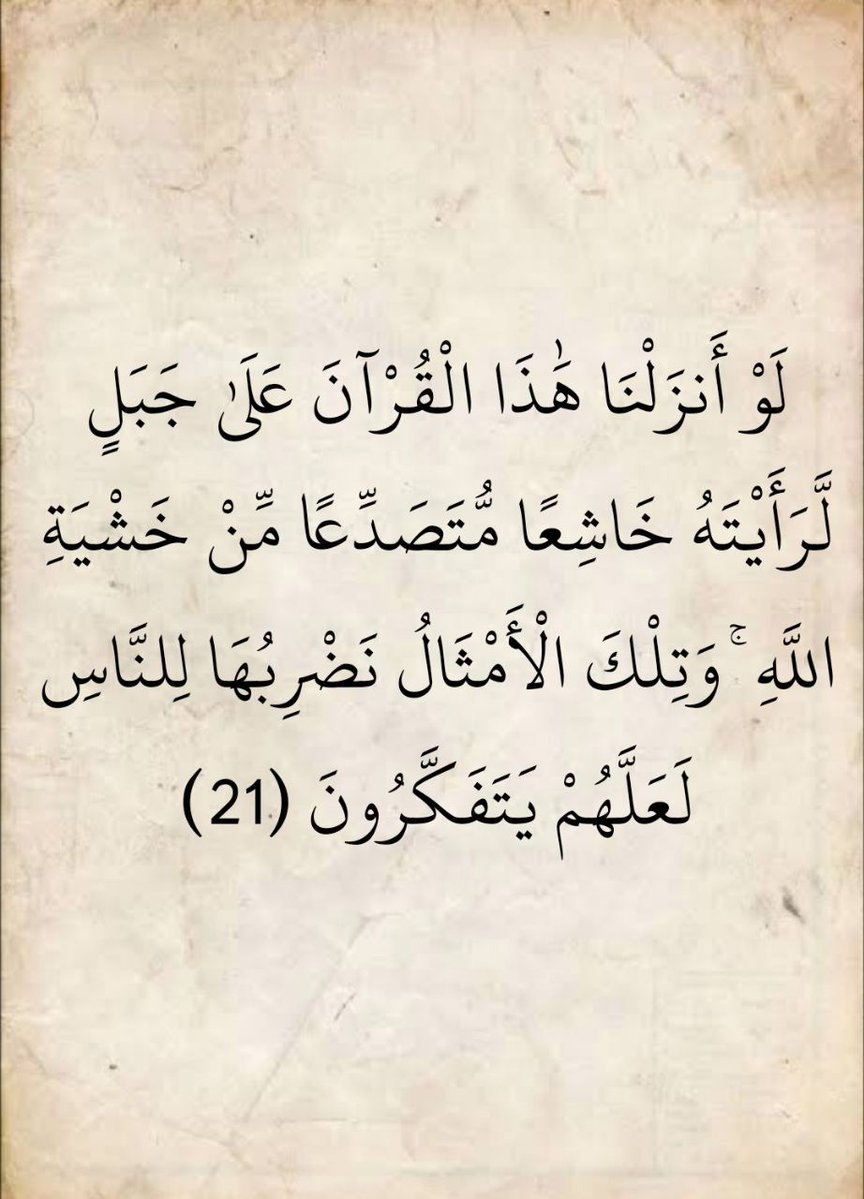 لَوْ أَنزَلْنَا هَٰذَا الْقُرْآنَ عَلَىٰ جَبَلٍ
لَّرَأَيْتَهُ خَاشِعًا مُّتَصَدِّعًا مِّنْ خَشْيَةِ
اللَّهِ ۚ وَتِلْكَ الْأَمْثَالُ نَضْرِبُهَا لِلنَّاسِ
لَعَلَّهُمْ يَتَفَكَّرُونَ (21)